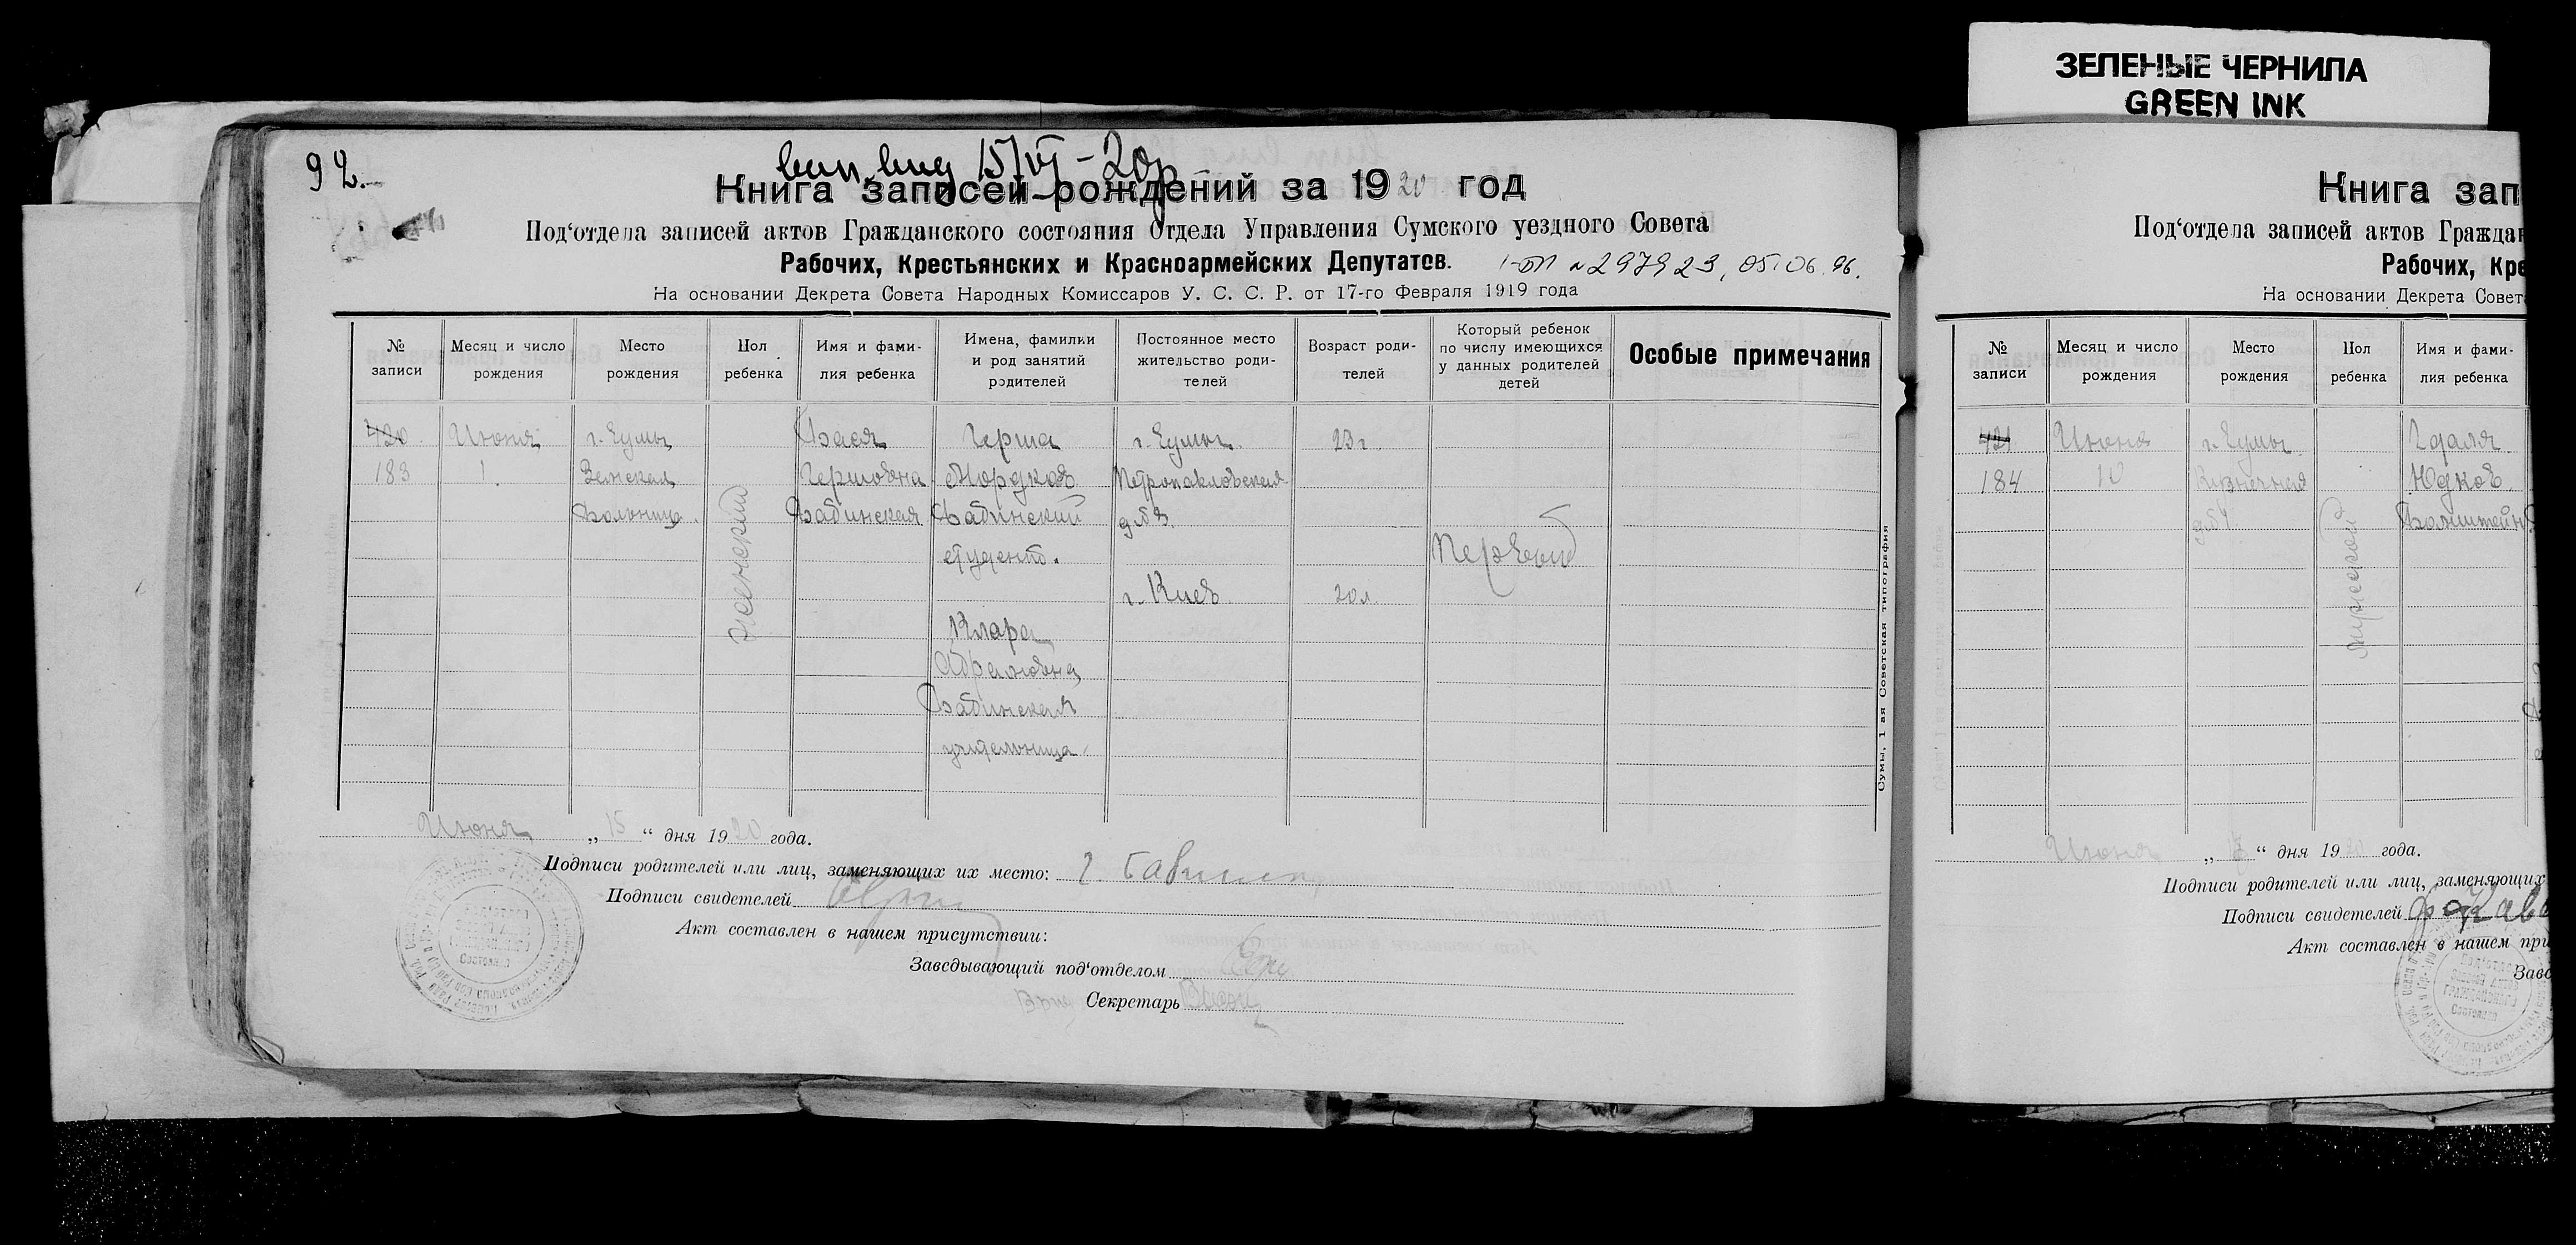 ЗЕЛЕНЫЕ ЧЕРНИЛА
GREEN INK
92.
15/VI-20р
Книга записей рождений за 1920 год
Под‘отдела записей актов Гражданского состояния Отдела Управления Сумского уездного Совета
Рабочих, Крестьянских и Красноармейских Депутатов. №297923, 05.06.96.
На основании Декрета Совета Народных Комиссаров У. С. С. Р. от 17-го Февраля 1919 года
№ записи
Месяц и число рождения
Место рождения
Пол ребенка
Имя и фами-
лия ребенка
Имена, фамилии
и род занятий
родителей
Постоянное место
жительство роди-
телей
Возраст роди-
телей
Который ребенок
по числу имеющихся
у данных родителей
детей
Особые примечания
420
183
Июня
1.
г. Сумы
Земская
Больница.
женский
Бася
Гершовна
Бабинская
Герша
Мордков
Бабинский
студент.
Клара
Абрамовна
Бабинская
учительница
г. Сумы.
Петропавловская
д№3.
г. Киев
23 г.
20 л.
Первый
Сумы, 1 ая Советская типография
Июня „ 15 “ дня 1920 года.
Подписи родителей или лиц, заменяющих их место:
Подписи свидетелей
Акт составлен в нашем присутствии:
Заведывающий под‘отделом
Врид Секретарь
Состояния
Книга зап
Под‘отдела записей актов Граждан
Рабочих, Кре
На основании Декрета Совет
№ записи
Месяц и число рождения
Место рождения
Пол ребенка
Имя и фами-
лия ребенка
421
184
Июня
10
г. Сумы
Кузнечная
мужской
Гдаля
Юдков.
Июня
“ дня 1920 года.
Подписи родителей или лиц, заменяющих
Подписи свидетелей
Акт составлен в нашем при
Заве
Под‘отдел
записей актов
гражданского
Состояния